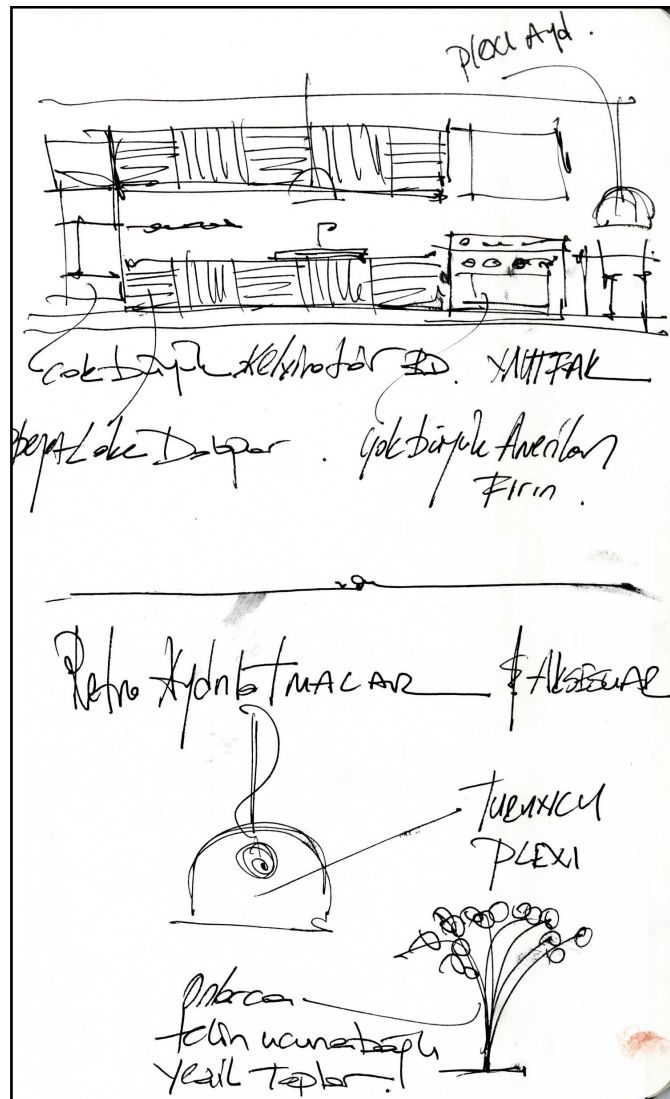 plexi Ayd.
Çok büyük Kelvinatör BD. MUTFAK
beyaz Lake Dolaplar. Çok büyük Amerikan
Fırın.
Retro AydınlatMALAR & AKSESUAR
TURUNCU
PLEXI
Onlarca
telin ucuna bağlı
yeşil Toplar!